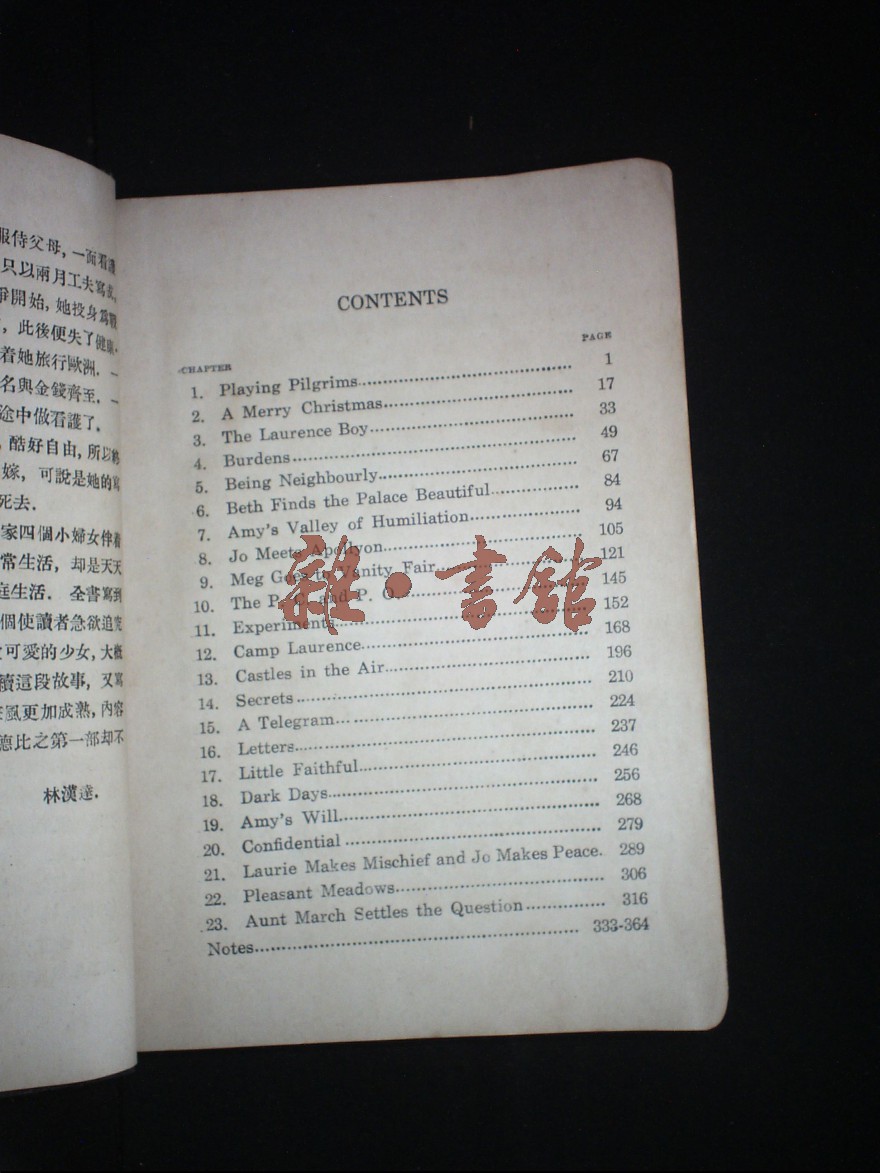 服侍父母，一面看護
只以兩月工夫寫成
爭開始，她投身爲戰
，此後便失了健康．
着她旅行歐洲．一
名與金錢齊至．一
途中做看護了．
，酷好自由，所以終
嫁，可說是她的寫
死去．
家四個小婦女伴着
常生活，却是天天
庭生活． 全書寫到
個使讀者急欲追究
可愛的少女，大概
續這段故事，又寫
風更加成熟，內容
德比之第一部却不
林漢達．
CONTENTS
CHAPTER PAGE
1. Playing Pilgrims 1
2. A Merry Christmas 17
3. The Laurence Boy 33
4. Burdens 49
5. Being Neighbourly 67
6. Beth Finds the Palace Beautiful 84
7. Amy's Valley of Humiliation 94
8. Jo Meets Apollyon 105
9. Meg Goes to Vanity Fair 121
10. The P. C. and P. O. 145
11. Experiments 152
12. Camp Laurence 168
13. Castles in the Air 196
14. Secrets 210
15. A Telegram 224
16. Letters 237
17. Little Faithful 246
18. Dark Days 256
19. Amy's Will 268
20. Confidential 279
21. Laurie Makes Mischief and Jo Makes Peace. 289
22. Pleasant Meadows 306
23. Aunt March Settles the Question 316
Notes 333-364
雜・書館